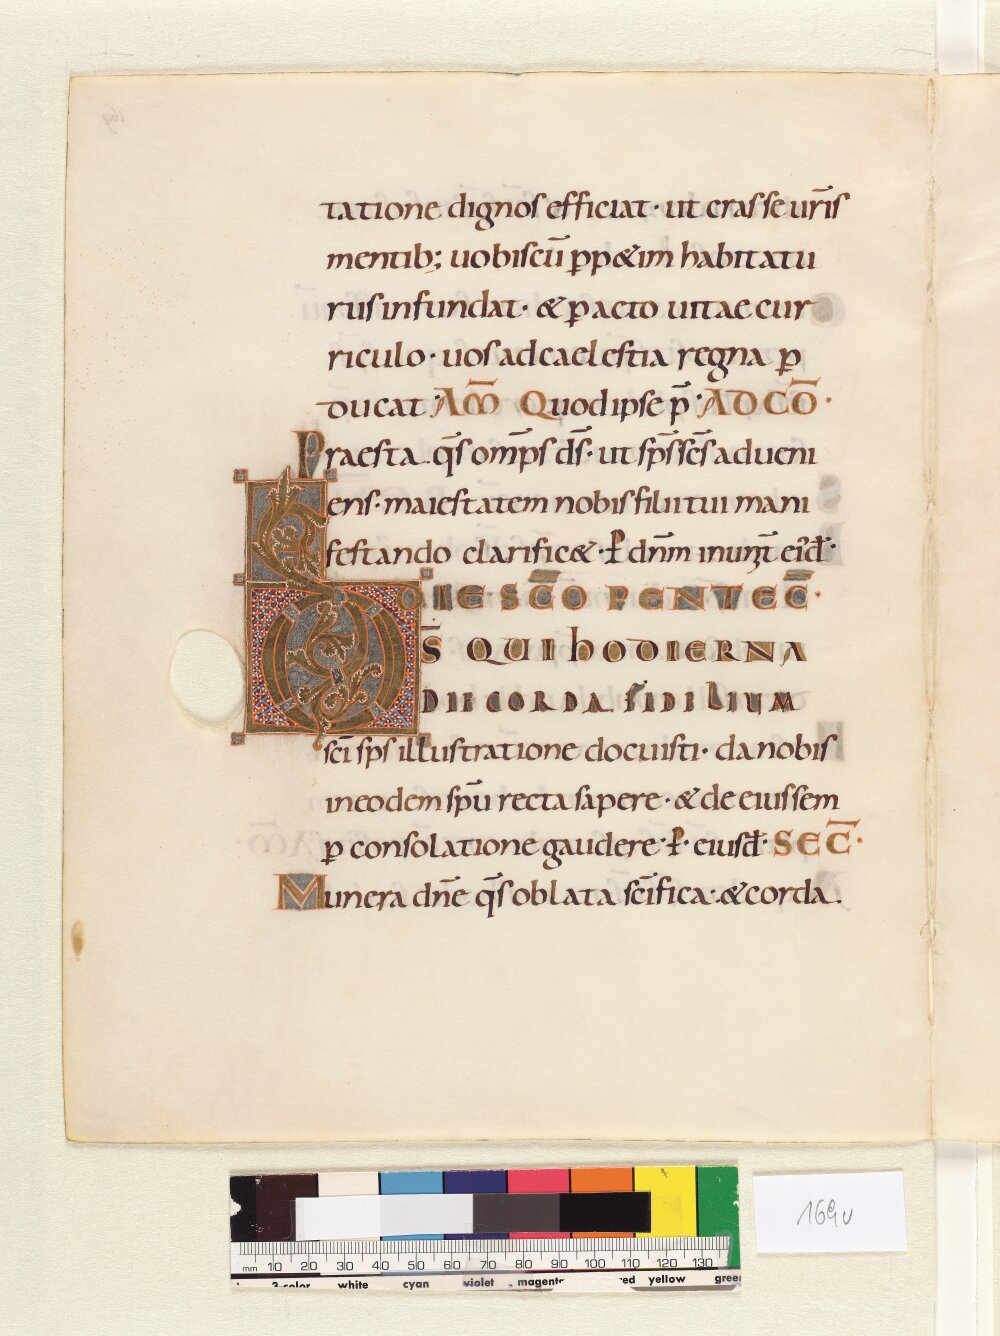 tatione dignos efficiat· ut crasse ur̅is
mentib; uobiscu̅ ꝑp&im habitatu
rus infundat· & ꝑacto uitae cur
riculo· uos ad caelestia regna ꝑ
ducat· AM̅ Quod ipse p̅· AD CO̅·
Praesta q̅s om̅ps d̅s· ut sp̅s sc̅s adueni
ens· maiestatem nobis filii tui mani
festando clarific&· P dn̅m in unit̅ eiđ·
DIE SC̅O PENTEC̅·
D̅S QUI hODIERNA
DIE CORDA FIDELIUM
sc̅i sp̅s illustratione docuisti· da nobis
in eodem sp̅u recta sapere· & de eius sem
ꝑ consolatione gaudere· P· eiusđ· SEC̅·
Munera dn̅e q̅s oblata sc̅ifica· & corda·
169v
mm 10 20 30 40 50 60 70 80 90 100 110 120 130
3-color white cyan violet magenta red yellow green